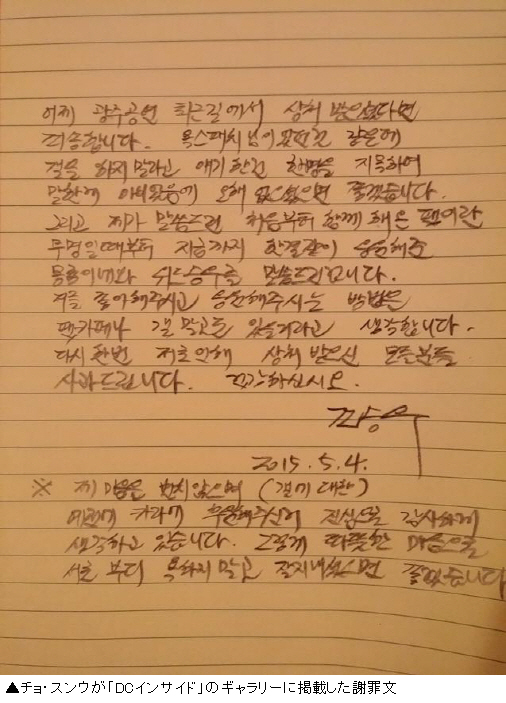 어제 광주공연 퇴근길에서 상처 받으셨다면
죄송합니다.
갤을 하지 말라고 얘기한건 한명을 지목하여
말한게 아니었음에 오해 없으셨으면 좋겠습니다.
그리고 제가 말씀드린 처음부터 함께 해온 팬이란
무명일때부터 지금까지 한결같이 응원해준
위드승우를 말씀드린겁니다.
저를 좋아해주시고 응원해주시는 방법은
팬카페나 갤 말고도 있을거라고 생각합니다.
다시 한번 저로 인해 상처 받으신 모든분들
사과드립니다. 건강하십시오.
조승우
2015. 5. 4.
※ 제 마음은 변치 않으며 (갤에 대한)
이번에 후원해주신거 진심으로 감사하게
생각하고 있습니다. 그렇게 따뜻한 마음으로
서로 부디 욕하지 말고 잘 지내셨으면 좋겠습니다
▲チョ・スンウが「DCインサイド」のギャラリーに掲載した謝罪文